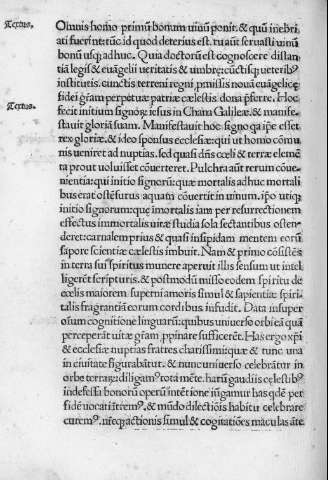 Textus.
Omnis homo primũ bonum uinũ ponit. & quũ inebri
ati fuerint: tũc id quod deterius est. tu aũt seruasti uinũ
bonũ usq; adhuc. Quia doctorũ est cognoscere distan
tiã legis & euãgelii ueritatis & umbrę: cũctisq; ueteribꝰ
institutis. cunctis terreni regni pmissis noua euãgelicę
fidei gr̃am perpetuæ patriæ cælestis dona p̃ferre. Hoc
Textus.
fecit initium signorꝝ iesus in Chana Galileæ. & manife
stauit gloriã suam. Manifestauit hoc signo qa ip̃e esset
rex gloriæ. & ideo sponsus ecclesiæ: qui ut homo cõmu
nis ueniret ad nuptias. sed quasi dñs cœli & terræ elemẽ
ta prout uoluisset cõuerteret. Pulchra aũt rerum cõue
nientia: qui initio signorũ: quæ mortalis adhuc mortali
bus erat ostẽsurus aquam cõuertit in uinum. ip̃o utiq;
initio signorum: quę imortalis iam per resurrectionem
effectus immortalis uitæ studia sola sectantibus osten
deret: carnalem prius & quasi insipidam mentem eorũ
sapore scientiæ cælestis imbuit. Nam & primo cõsistẽs
in terra sui spiritus munere aperuit illis sensum ut intel
ligerẽt scripturis. & postmodũ misso eodem spiritu de
cœlis maiorem superni amoris simul & sapientiæ spiri-
talis fragrantiã eorum cordibus infudit. Data insuper
osum cognitione linguarũ: quibus uniuerso orbi ea quã
perceperãt uitæ gr̃am, ppinare sufficerẽt. Has ergo xp̃i
& ecclesiæ nuptias fratres charissimi: quæ & tunc una
in ciuitate figurabãtur. & nunc uniuerso celebrãtur in
orbe terraꝝ: diligamꝰ tota mẽte. harũ gaudiis cęlestibꝰ
indefessa bonorũ operũ intẽtione iũgamur has qdẽ per
fidẽ uocati ãtremꝰ. & mũdo dilectiõis habitu celebrare
curemꝰ. nęcq; actionis simul & cogitatiões maculas ãte.